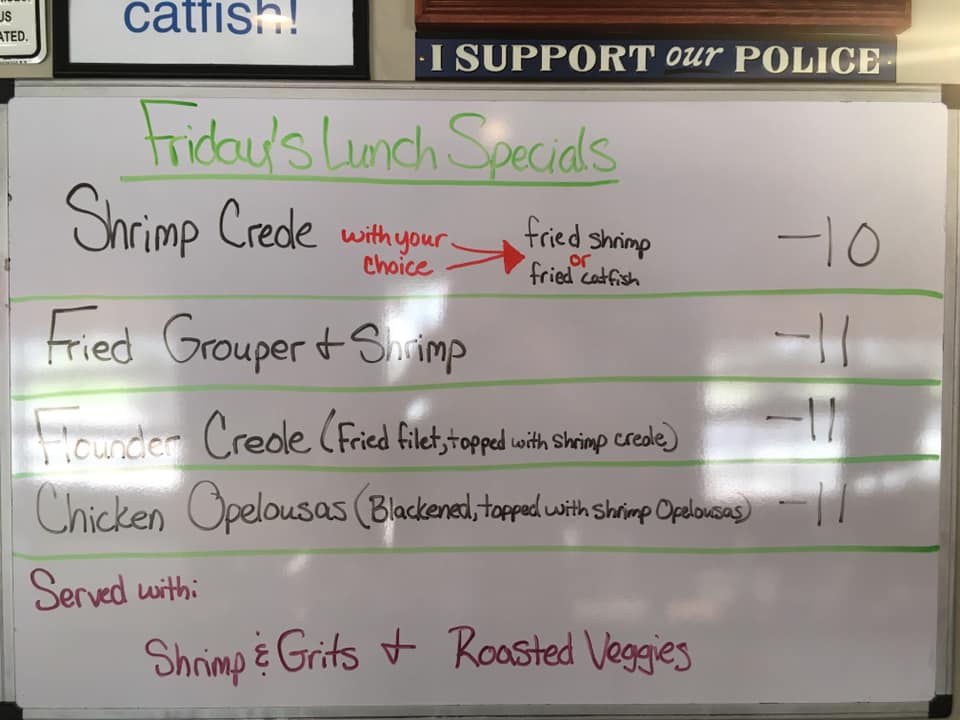 US
ATED.
catfish!
I SUPPORT our POLICE
Friday's Lunch Specials
Shrimp Creole with your choice fried shrimp or fried catfish -10
Fried Grouper + Shrimp -11
Flounder Creole (Fried filet, topped with shrimp creole) -11
Chicken Opelousas (Blackened, topped with shrimp Opelousas) -11
Served with:
Shrimp & Grits + Roasted Veggies